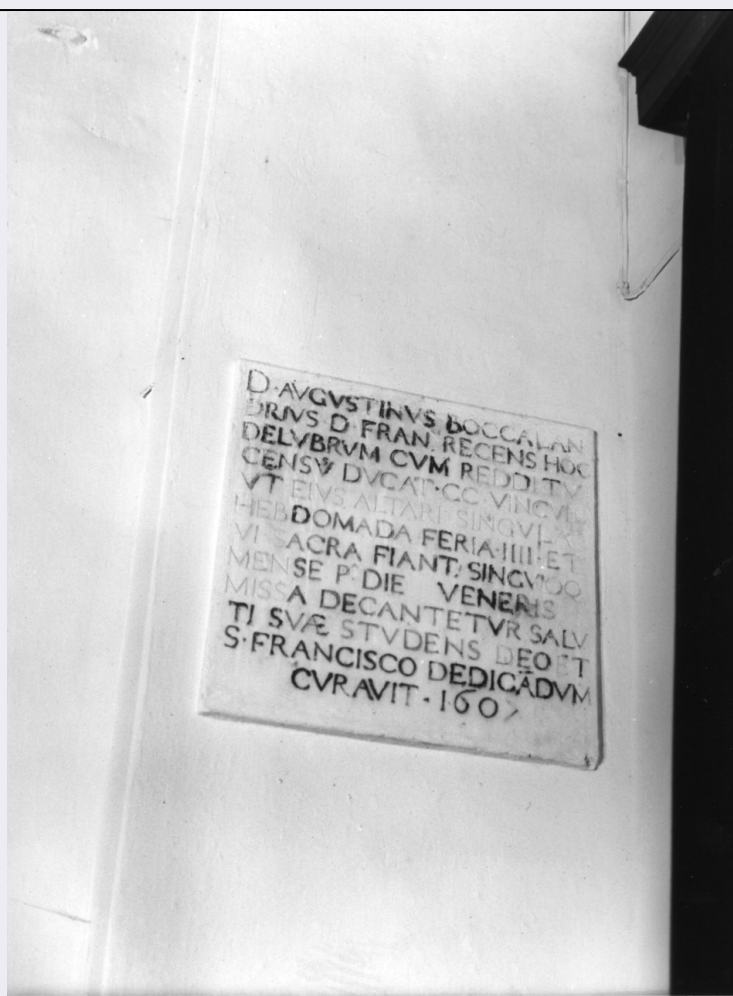 D·AVGVSTINVS BOCCALAN
DRIVS D·FRAN. RECENS HOC
DELVBRVM CVM REDDITV
CENSV DVCAT·CC·VINCVLIT
VT EIVS ALTARI SINGVLA
HEBDOMADA FERIA·IIII·ET
VI SACRA FIANT. SINGVLOQ
MENSE P.ª DIE VENERIS
MISSA DECANTETVR SALV
TI SVÆ STVDENS DEO ET
S·FRANCISCO DEDICĀDVM
CVRAVIT·160